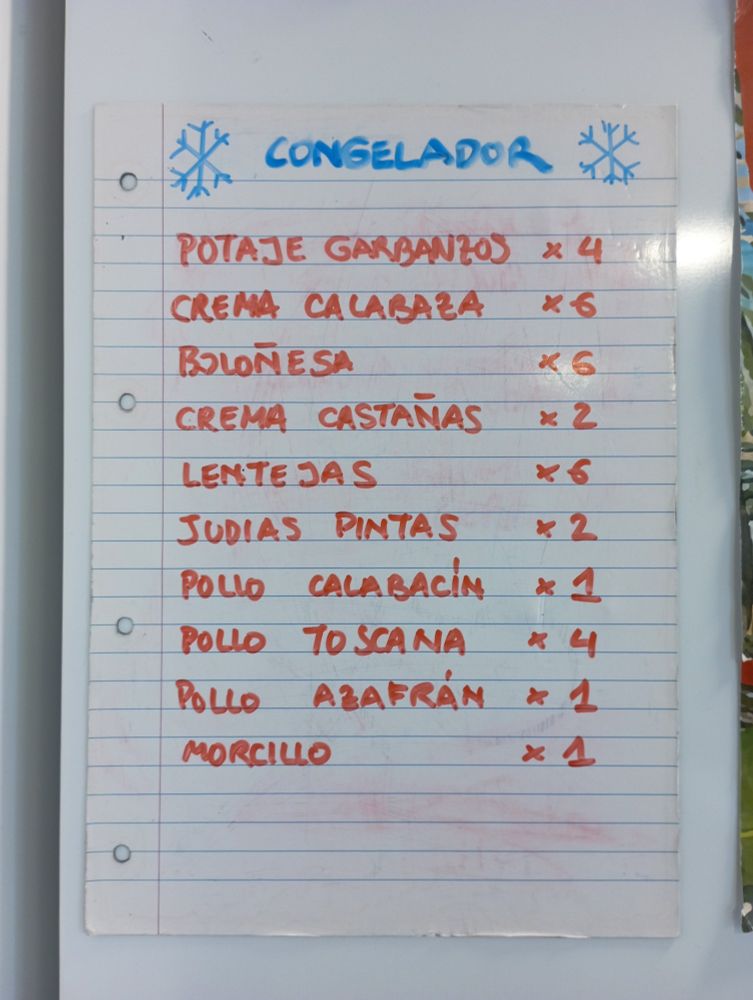 CONGELADOR
POTAJE GARBANZOS x 4
CREMA CALABAZA x 6
BOLOÑESA x 6
CREMA CASTAÑAS x 2
LENTEJAS x 6
JUDIAS PINTAS x 2
POLLO CALABACÍN x 1
POLLO TOSCANA x 4
POLLO AZAFRÁN x 1
MORCILLO x 1